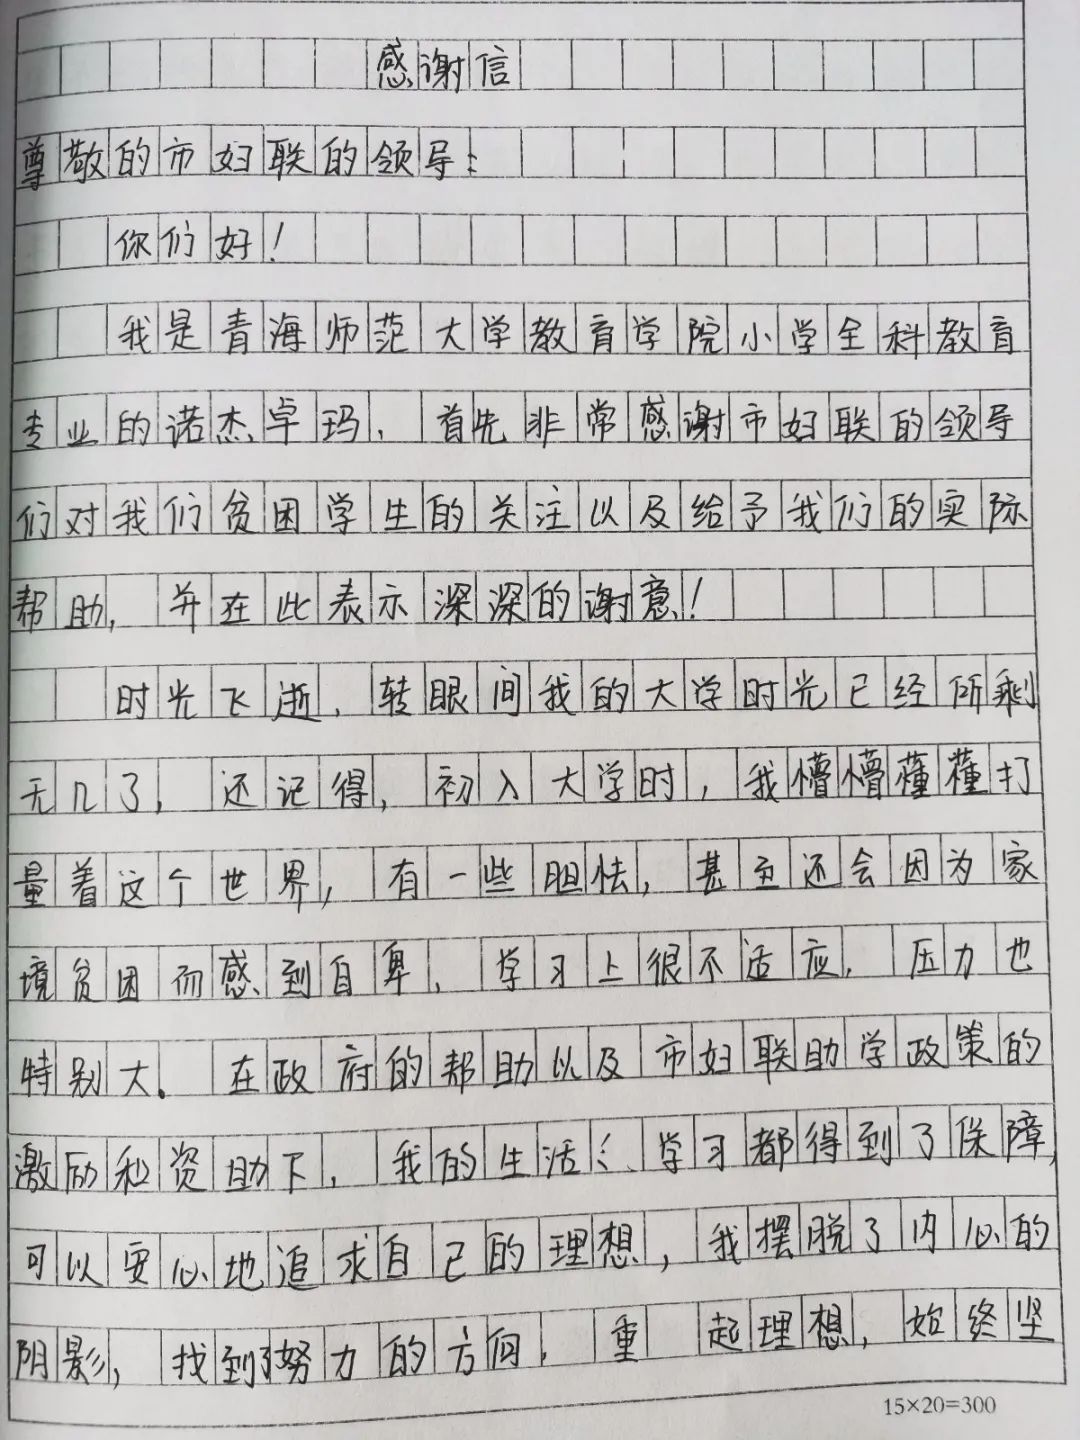 感谢信
尊敬的市妇联的领导：
你们好！
我是青海师范大学教育学院小学全科教育
专业的诺杰卓玛，首先非常感谢市妇联的领导
们对我们贫困学生的关注以及给予我们的实际
帮助，并在此表示深深的谢意！
时光飞逝，转眼间我的大学时光已经所剩
无几了，还记得，初入大学时，我懵懵
打
量着这个世界，有一些胆怯，甚至还会因为家
境贫困而感到自卑，学习上很不适应，压力也
特别大。在政府的帮助以及市妇联助学政策的
激励和资助下，我的生活、学习都得到了保障，
可以安心地追求自己的理想，我摆脱了内心的
阴影，找到了努力的方向，重 起理想，始终坚
15×20=300